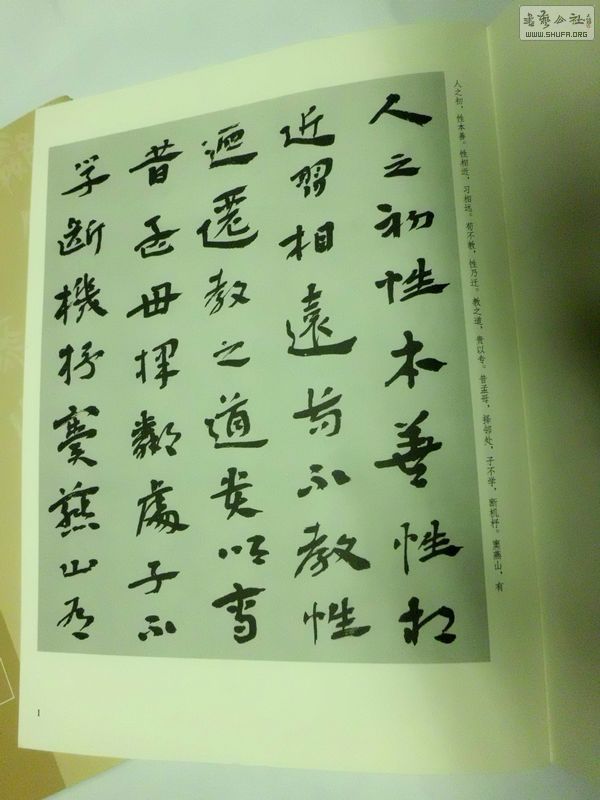 書藝公社
WWW.SHUFA.ORG
人之初，性本善。性相近，习相远。苟不教，性乃迁。教之道，贵以专。昔孟母，择邻处，子不学，断机杼。窦燕山，有
人之初性本善性相
近習相遠苟不教性
迺遷教之道贵以專
昔孟母擇鄰處子不
学断機杼竇燕山有
1